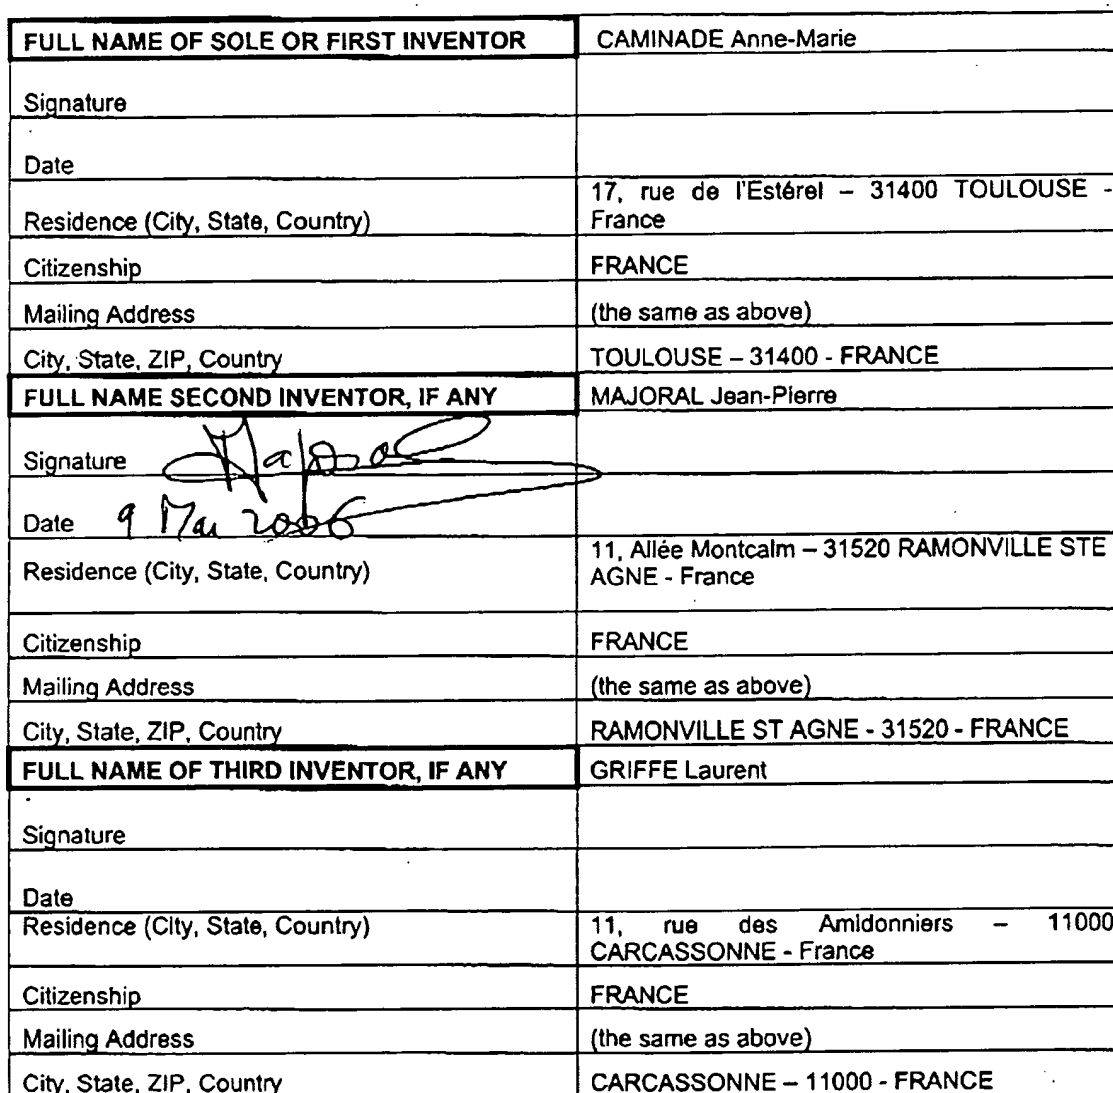 FULL NAME OF SOLE OR FIRST INVENTOR CAMINADE Anne-Marie
Signature
Date
Residence (City, State, Country) 17, rue de l'Estérel – 31400 TOULOUSE -
France
Citizenship FRANCE
Mailing Address (the same as above)
City, State, ZIP, Country TOULOUSE – 31400 - FRANCE
FULL NAME SECOND INVENTOR, IF ANY MAJORAL Jean-Pierre
Signature Majoral
Date 9 Mai 2006
Residence (City, State, Country) 11, Allée Montcalm – 31520 RAMONVILLE STE
AGNE - France
Citizenship FRANCE
Mailing Address (the same as above)
City, State, ZIP, Country RAMONVILLE ST AGNE - 31520 - FRANCE
FULL NAME OF THIRD INVENTOR, IF ANY GRIFFE Laurent
Signature
Date
Residence (City, State, Country) 11, rue des Amidonniers – 11000
CARCASSONNE - France
Citizenship FRANCE
Mailing Address (the same as above)
City, State, ZIP, Country CARCASSONNE – 11000 - FRANCE